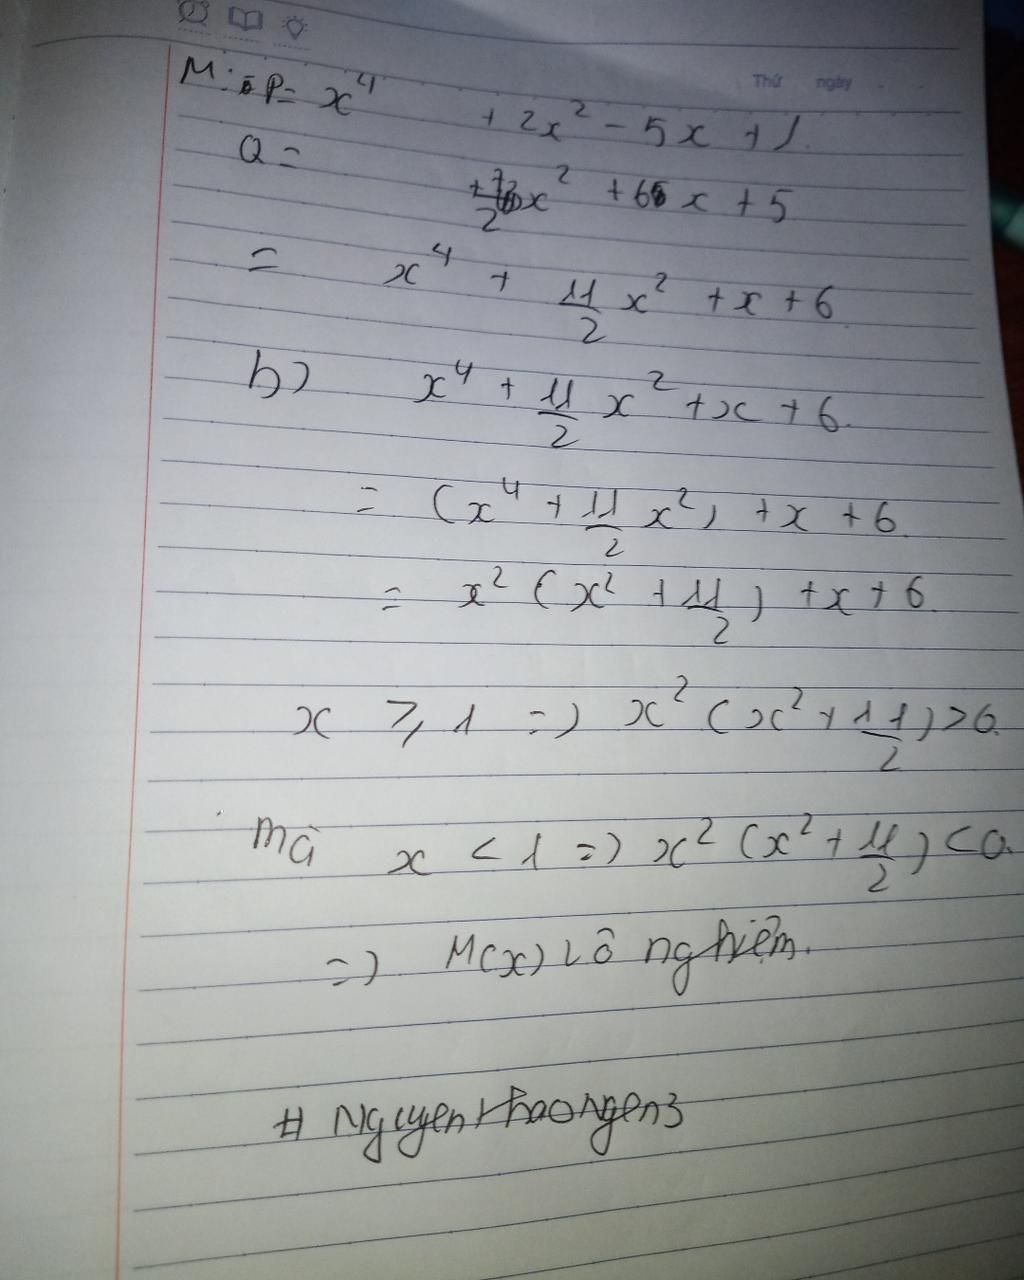 Thứ ngày
M: P = x⁴ + 2x² - 5x + 1.
Q = + 7/2 x² + 6x + 5
= x⁴ + 11/2 x² + x + 6
b) x⁴ + 11/2 x² + x + 6.
= (x⁴ + 11/2 x²) + x + 6
= x² (x² + 11/2) + x + 6
x ⩾ 1 => x² (x² + 11/2) > 0
mà x < 1 => x² (x² + 11/2) < 0.
=> M(x) vô nghiệm.
# NguyenthaoNgen3